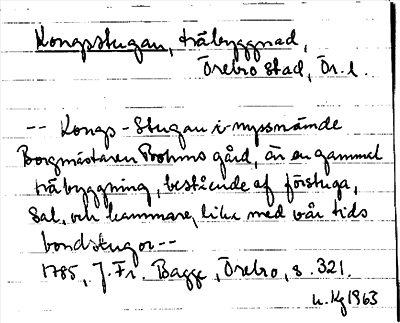 Kongsstugan, träbyggnad,
Örebro stad, Ör. l.
-- Kongs-Stugan i nyssnämde
Borgmästaren Bohms gård, är en gammel
träbyggning, bestående af förstuga,
Sal, och kammare, lika med vår tids
bondstugor --
1785, J. Fr. Bagge, Örebro, s. 321.
u. Kg 1963